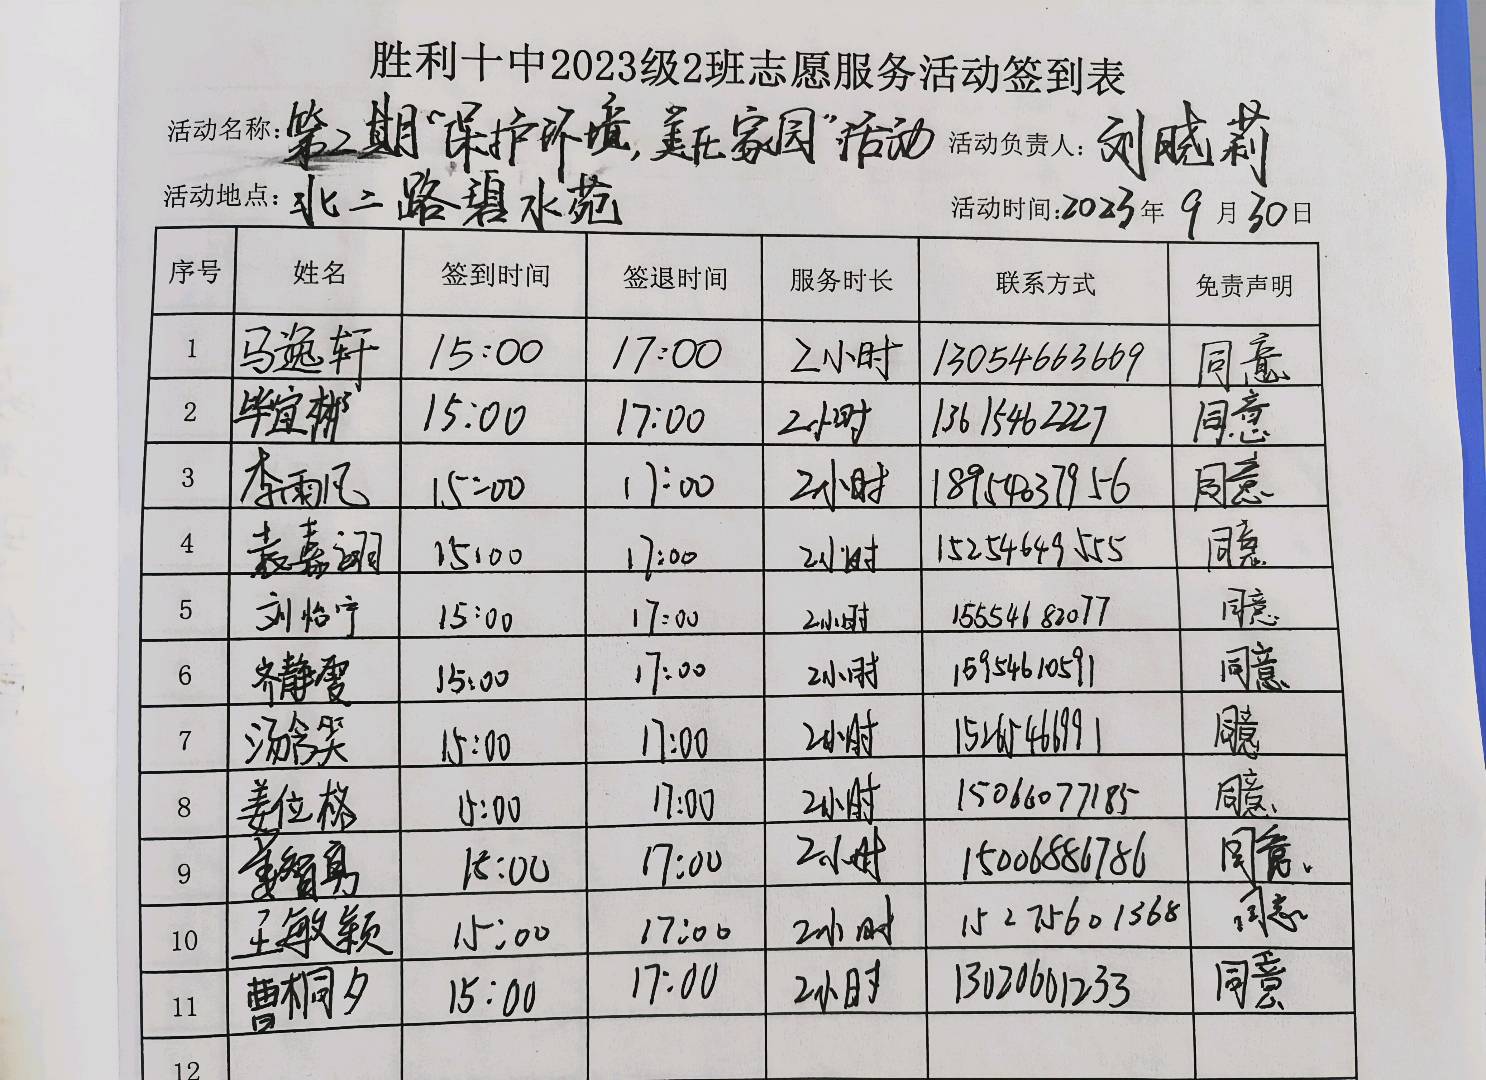 胜利十中2023级2班志愿服务活动签到表
活动名称:第二期“保护环境,美在家园”活动 活动负责人:刘晓莉
活动地点:北二路碧水苑 活动时间:2023年9月30日
序号 姓名 签到时间 签退时间 服务时长 联系方式 免责声明
1 马逸轩 15:00 17:00 2小时 13054663669 同意
2 毕宜彬 15:00 17:00 2小时 13615462227 同意
3 李雨凡 15:00 17:00 2小时 18954637956 同意
4 袁嘉翊 15:00 17:00 2小时 15254649555 同意
5 刘怡宁 15:00 17:00 2小时 15554682077 同意
6 齐静雯 15:00 17:00 2小时 15954610591 同意
7 汤含笑 15:00 17:00 2小时 15265466991 同意
8 姜位格 15:00 17:00 2小时 15066077185 同意
9 姜智勇 15:00 17:00 2小时 15006886786 同意
10 王敏颖 15:00 17:00 2小时 15275601368 同意
11 曹桐夕 15:00 17:00 2小时 13020601233 同意
12